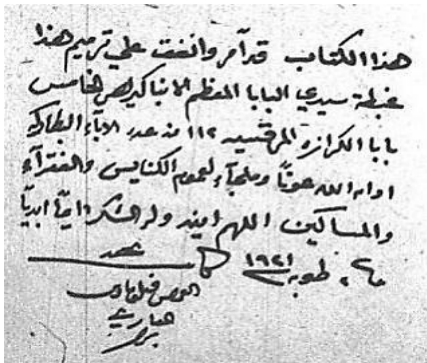 هذا الكتاب قد آمر وانفق علي ترميم هذا
غبطة سيدي البابا المعظم الانبا كيرلص الخامس
بابا الكرازه المرقسيه ١١٢ من عدد الاباء البطاركه
ادامه الله عونًا وملجآء لعموم الكنايس والفقرآء
والمساكين اللهم ايد وله الشكر دايمًا ابديًا
طوبه ١٩٢١
القمص